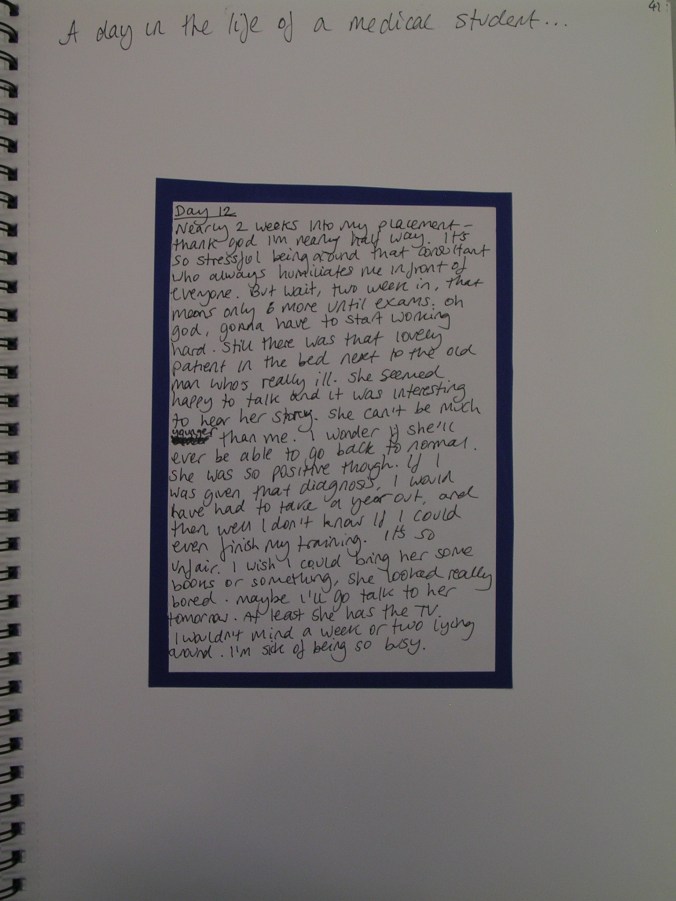 41
A day in the life of a medical student...
Day 12
Nearly 2 weeks into my placement -
thank god i'm nearly half way. It's
so stressful being around that consultant
who always humiliates me infront of
everyone. But wait, two week in, that
means only 6 more until exams. oh
god, gonna have to start working
hard. Still there was that lovely
patient in the bed next to the old
man who's really ill. She seemed
happy to talk and it was interesting
to hear her story. She can't be much
younger than me. I wonder if she'll
ever be able to go back to normal.
She was so positive though. If I
was given that diagnosis, I would
have had to take a year out, and
then, well I don't know if I could
even finish my training. It's so
unfair. I wish I could bring her some
books or something, she looked really
bored. maybe i'll go talk to her
tomorrow. At least she has the TV.
I wouldn't mind a week or two lying
around. I'm sick of being so busy.